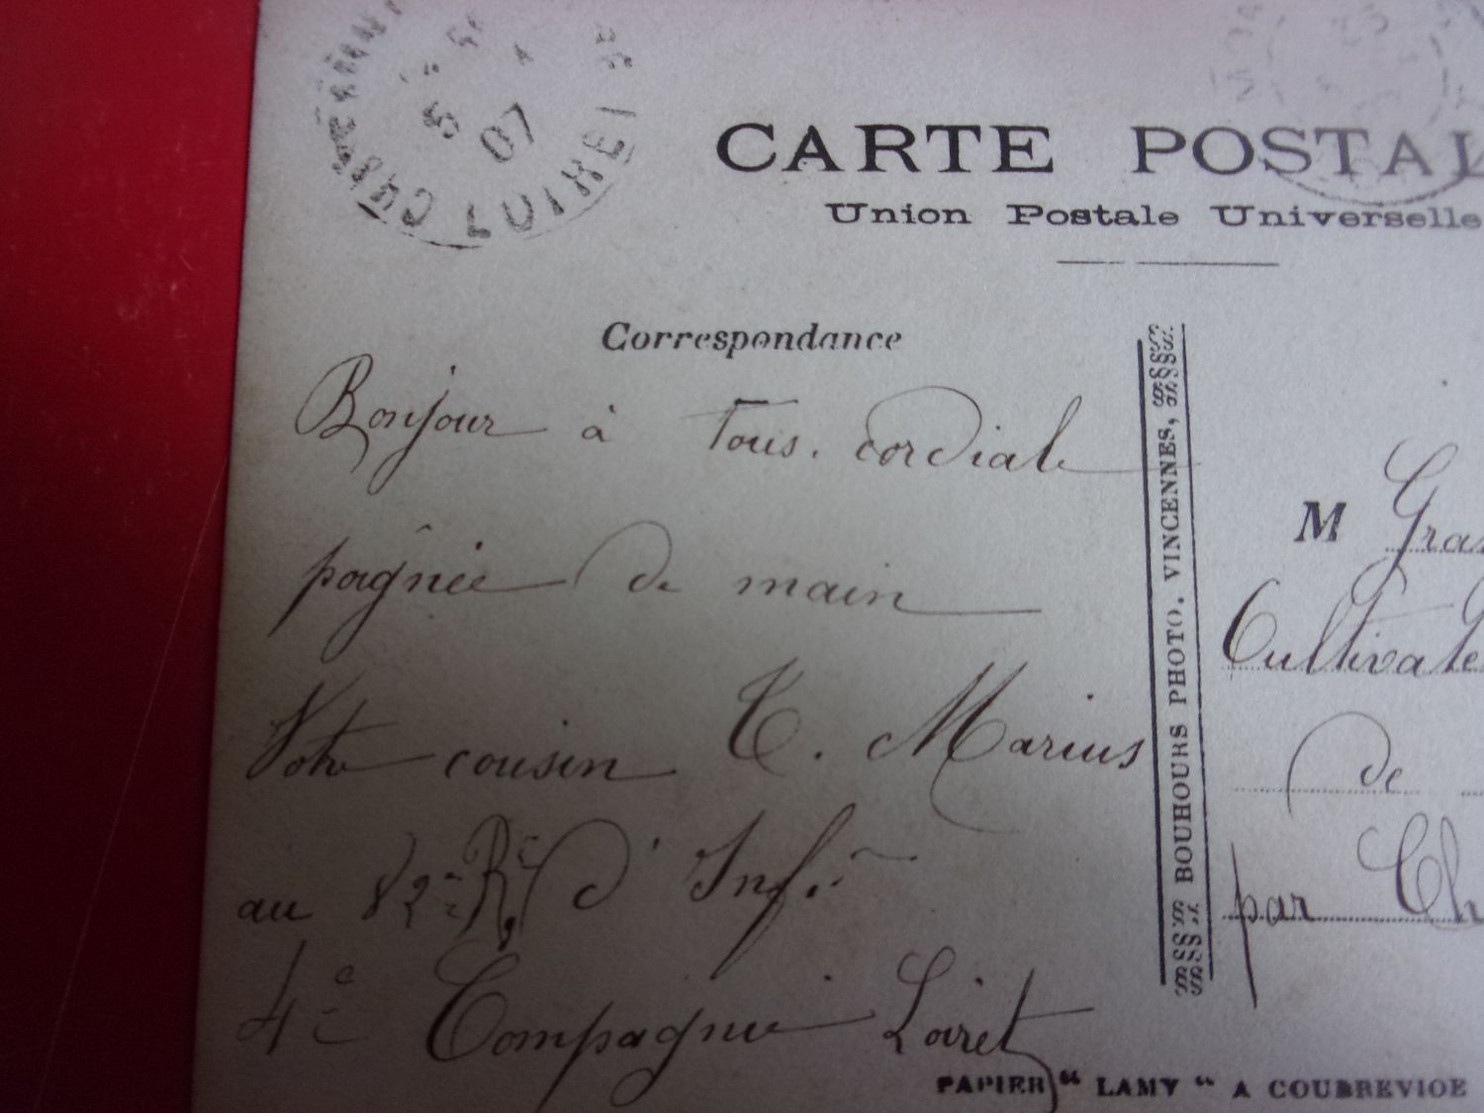 07
LOIRET
CARTE POSTAL
Union Postale Universelle
Correspondance
Bonjour à Tous. cordiale
pôgnée de main
Votre cousin T. Marius
au 82e Rt d'Inf.ie
4e Compagnie Loiret
BOUHOURS PHOTO. VINCENNES,
M Gra
Cultivate
de
par Ch
PAPIER " LAMY " A COURBEVIOE